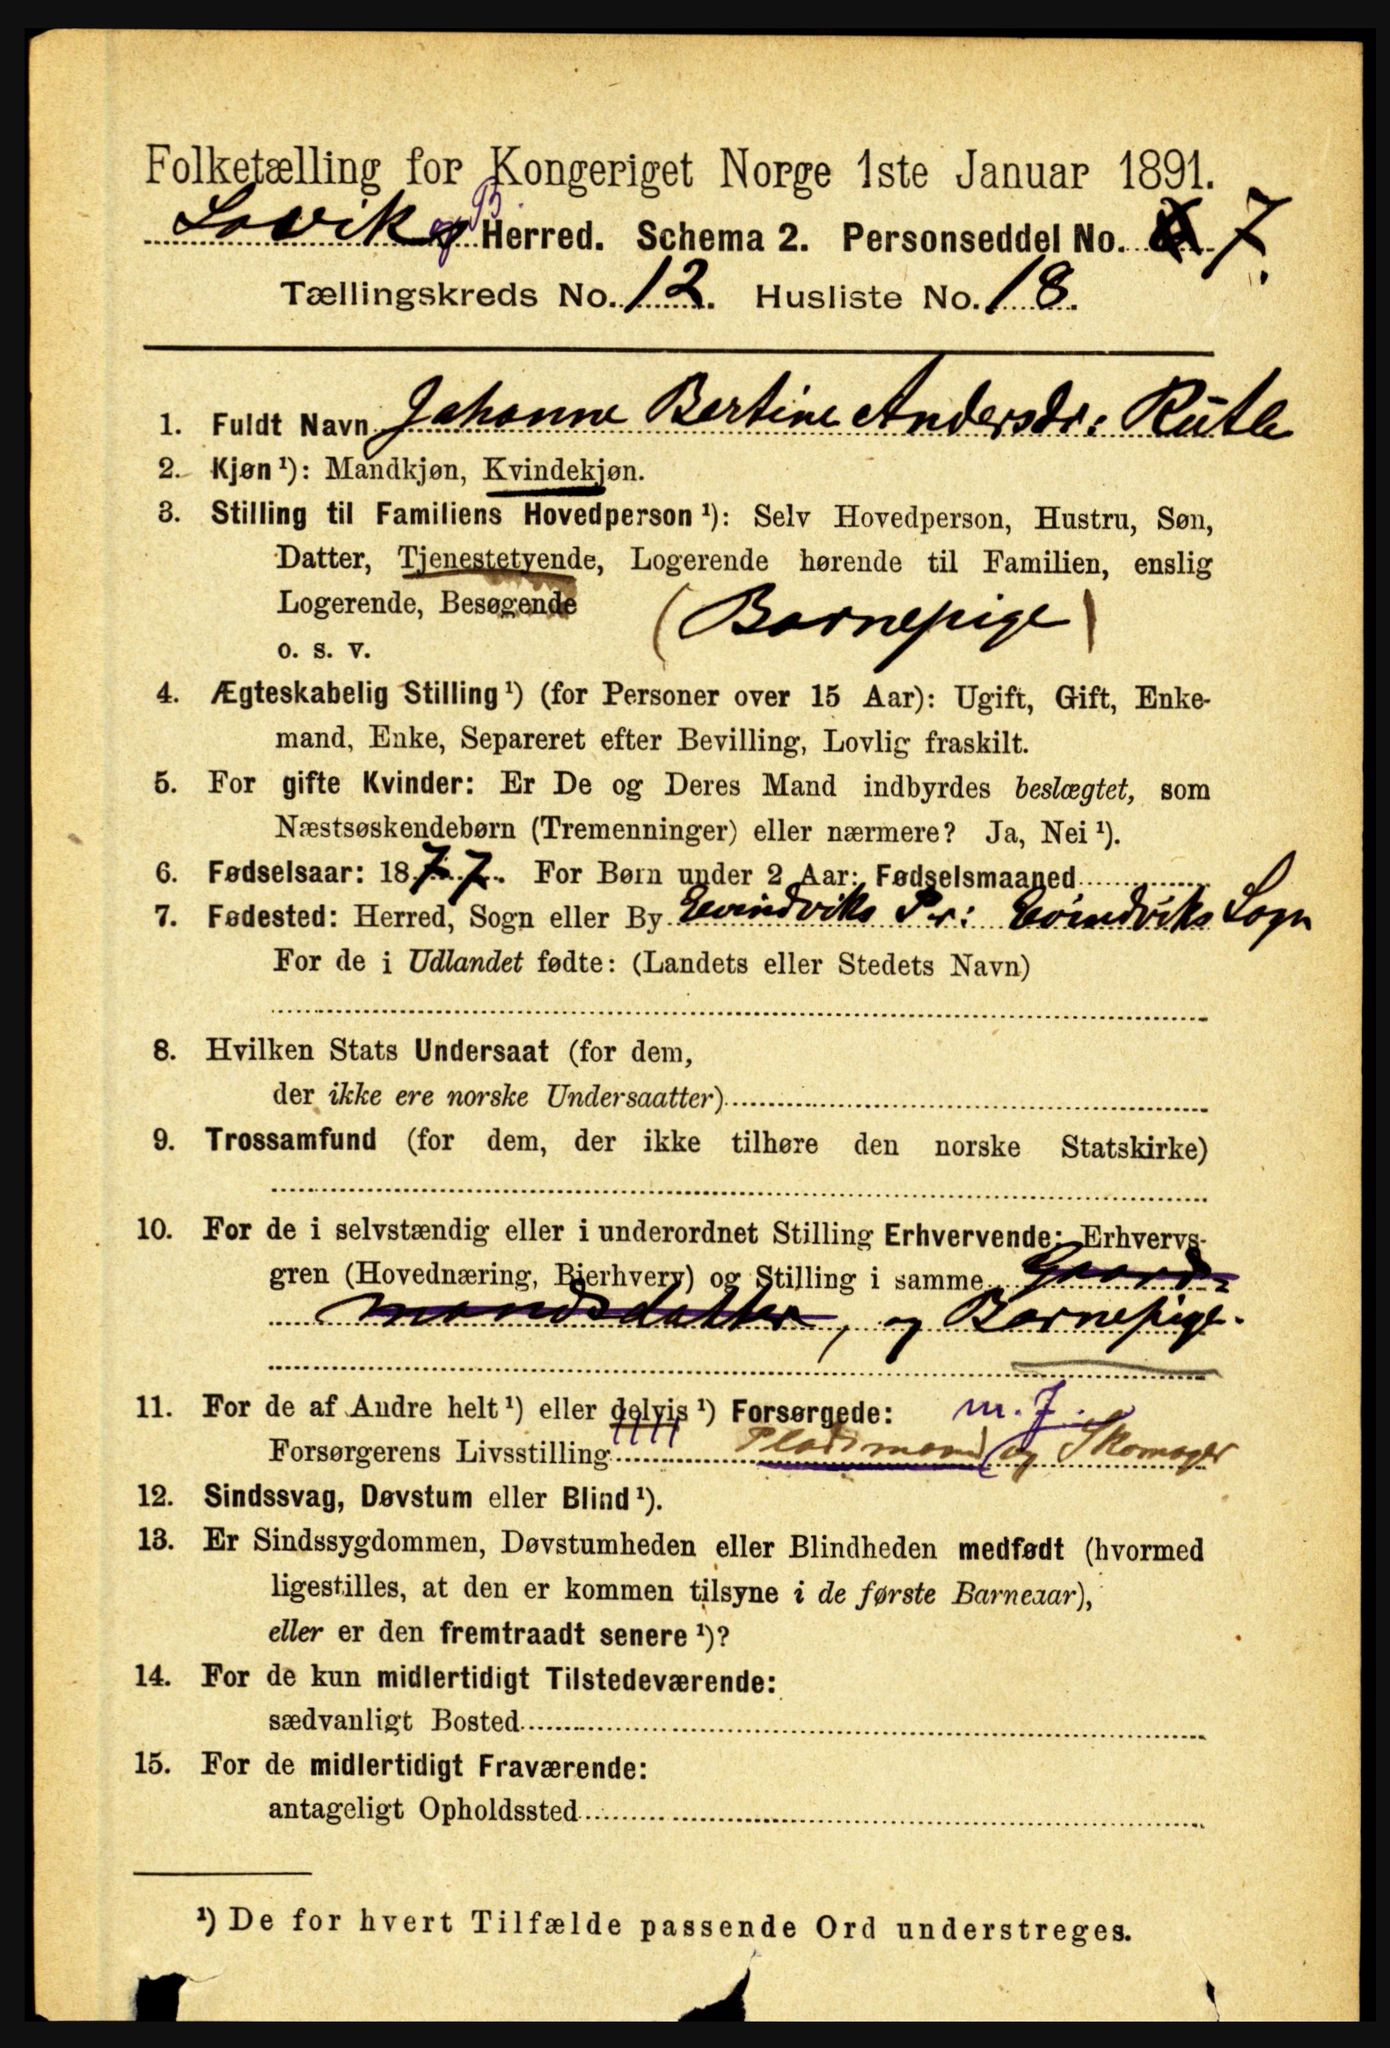 Folketælling for Kongeriget Norge 1ste Januar 1891.
Lavik og B. Herred. Schema 2. Personseddel No. 7.
Tællingskreds No. 12. Husliste No. 18.
1. Fuldt Navn Johanne Bertine Andersdr: Rutle
2. Kjøn¹): Mandkjøn, Kvindekjøn.
3. Stilling til Familiens Hovedperson¹): Selv Hovedperson, Hustru, Søn,
Datter, Tjenestetyende, Logerende hørende til Familien, enslig
Logerende, Besøgende (Barnepige)
o. s. v.
4. Ægteskabelig Stilling¹) (for Personer over 15 Aar): Ugift, Gift, Enke-
mand, Enke, Separeret efter Bevilling, Lovlig fraskilt.
5. For gifte Kvinder: Er De og Deres Mand indbyrdes beslægtet, som
Næstsøskendebørn (Tremenninger) eller nærmere? Ja, Nei¹).
6. Fødselsaar: 1877. For Børn under 2 Aar: Fødselsmaaned
7. Fødested: Herred, Sogn eller By Evindviks Pr: Evindviks Sogn
For de i Udlandet fødte: (Landets eller Stedets Navn)
8. Hvilken Stats Undersaat (for dem,
der ikke ere norske Undersaatter)
9. Trossamfund (for dem, der ikke tilhøre den norske Statskirke)
10. For de i selvstændig eller i underordnet Stilling Erhvervende: Erhvervs-
gren (Hovednæring, Bierhverv) og Stilling i samme Gaard-
mandsdatter, og Barnepige.
11. For de af Andre helt¹) eller delvis¹) Forsørgede: m. J.
Forsørgerens Livsstilling Pladsmand og Skomager
12. Sindssvag, Døvstum eller Blind¹).
13. Er Sindssygdommen, Døvstumheden eller Blindheden medfødt (hvormed
ligestilles, at den er kommen tilsyne i de første Barneaar),
eller er den fremtraadt senere¹)?
14. For de kun midlertidigt Tilstedeværende:
sædvanligt Bosted
15. For de midlertidigt Fraværende:
antageligt Opholdssted
¹) De for hvert Tilfælde passende Ord understreges.